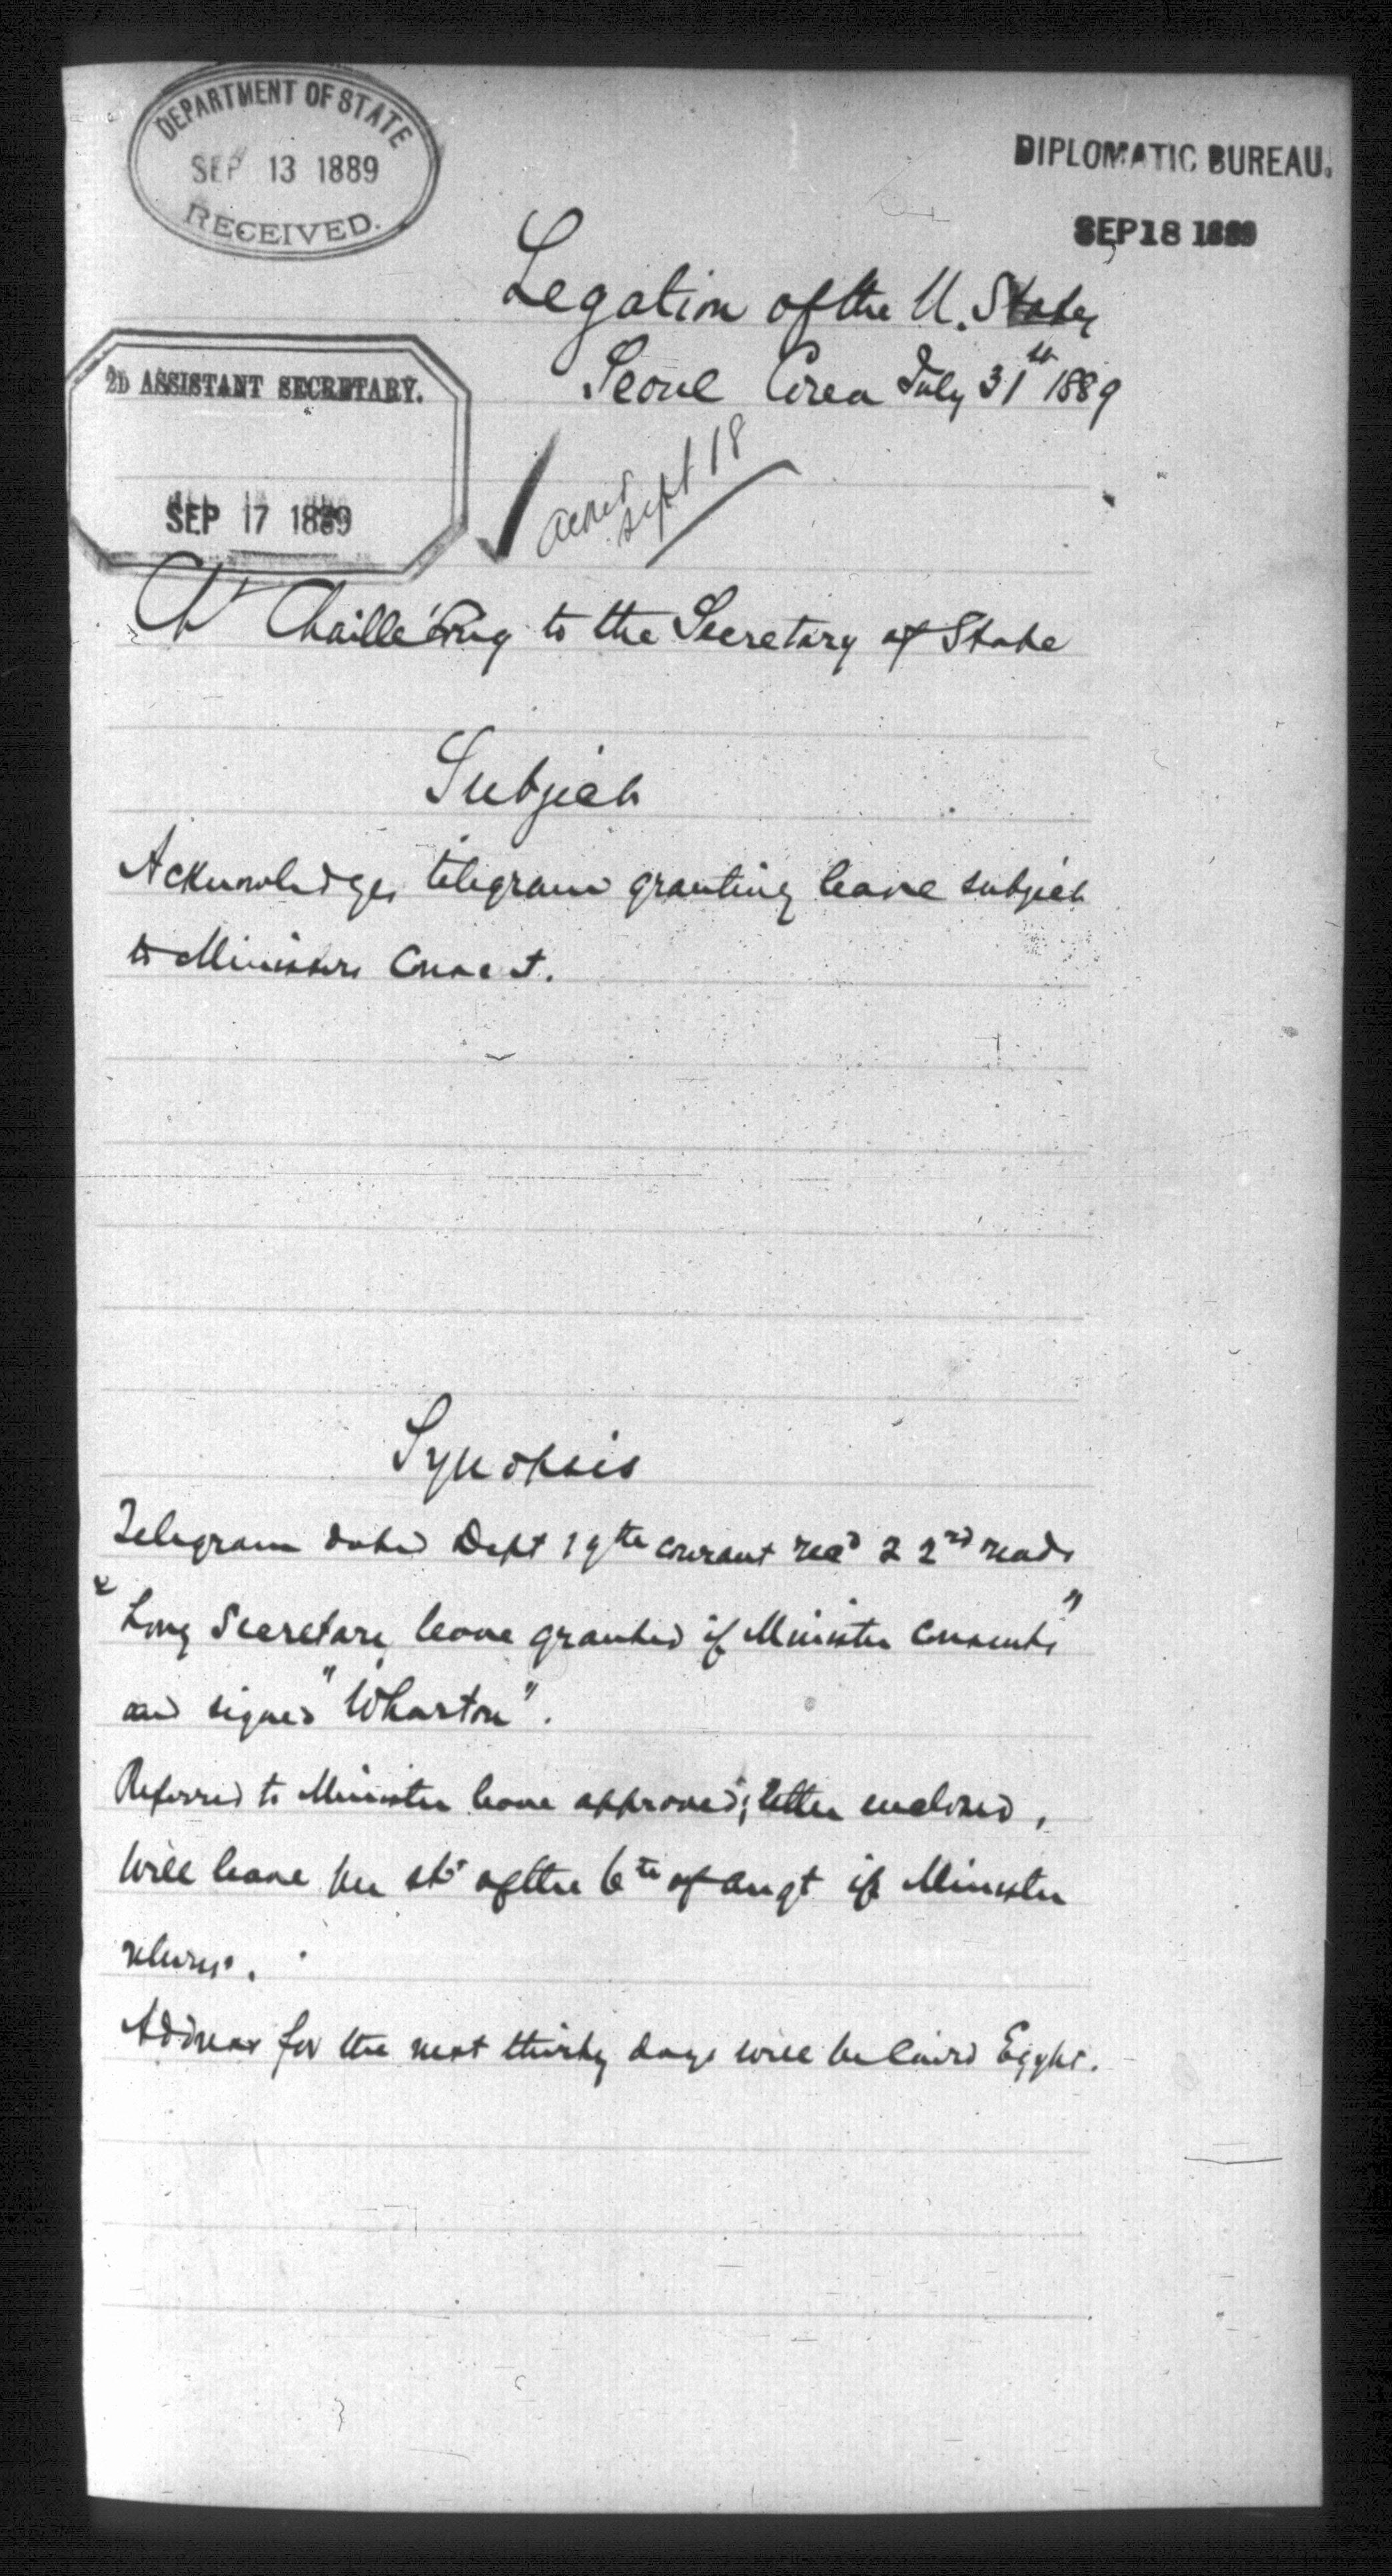 DEPARTMENT OF STATE
SEP 13 1889
RECEIVED.
DIPLOMATIC BUREAU.
SEP 18 1889
Legation of the U. States
Seoul Corea July 31st 1889
2D ASSISTANT SECRETARY.
SEP 17 1889
Sept 18
Chaillé Long to the Secretary of State
Subject
Acknowledges telegram granting leave subject
to Ministers Consent.
Synopsis
Telegram dated Dept 19th courant recd 22nd reads
"Long Secretary leave granted if Minister consents"
and signed "Wharton".
Referred to Minister leave approved; letter enclosed.
Will leave per str of the 6th of Augt if Minister
returns.
Address for the next thirty days will be Cairo Egypt.